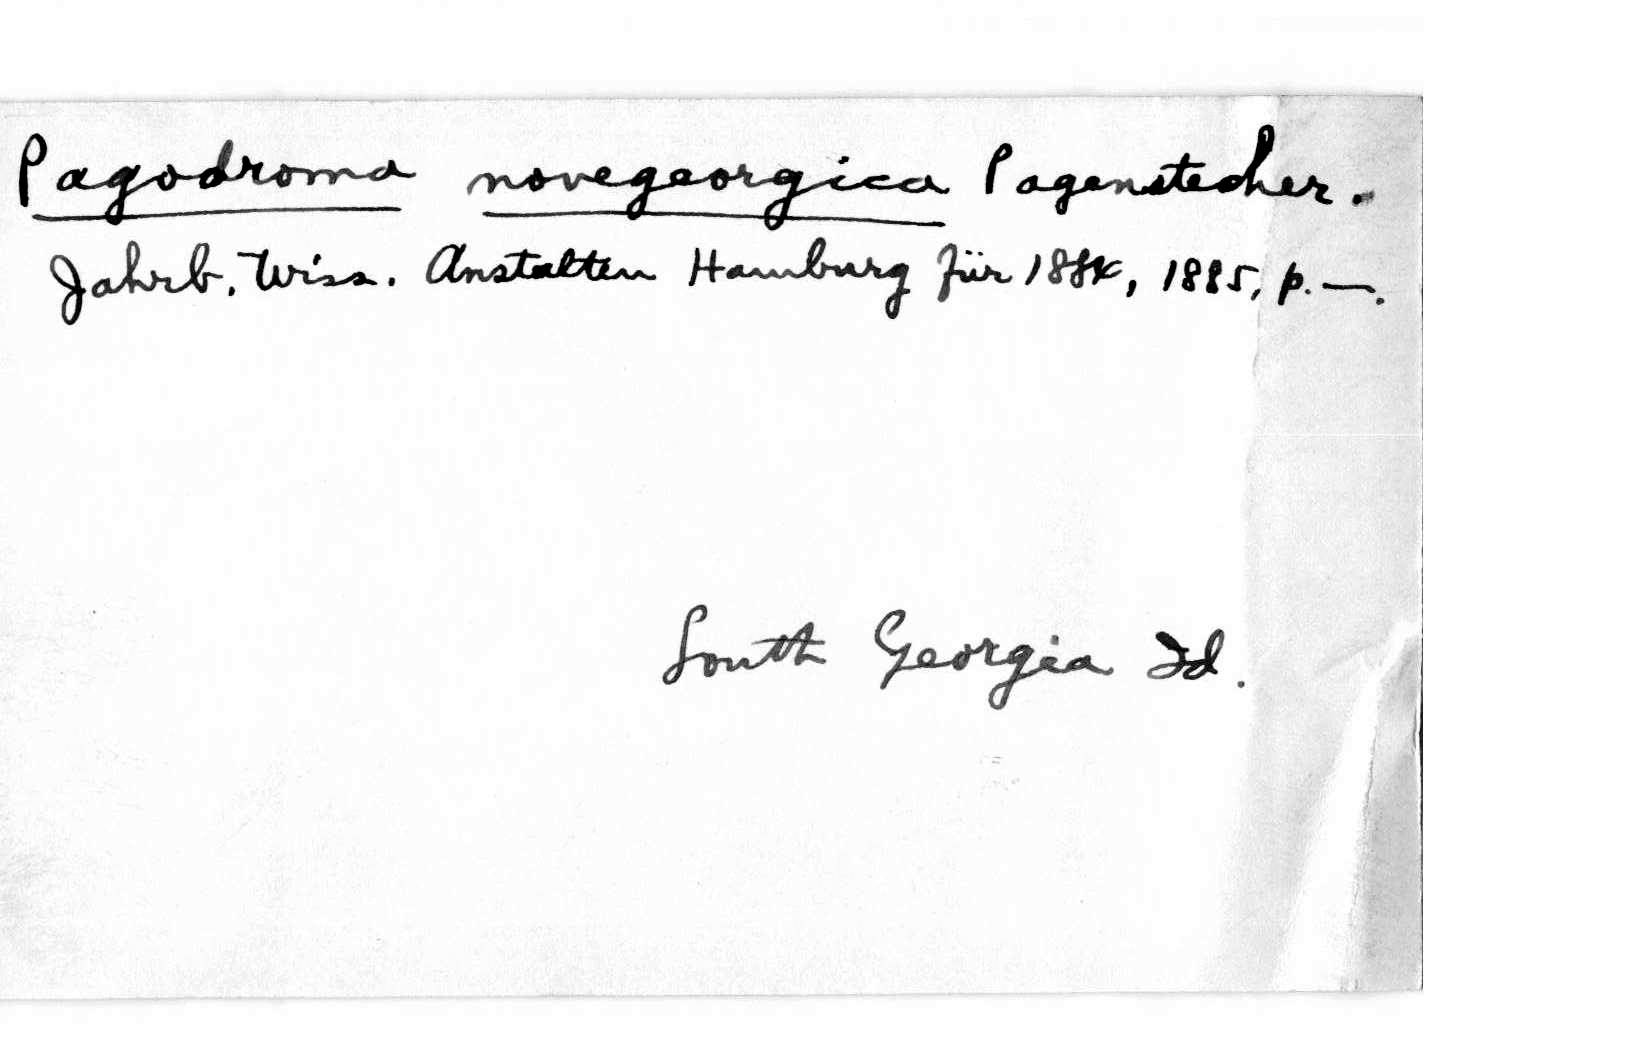 Pagodroma novegeorgica Pagenstecher.
Jahrb. Wiss. Anstalten Hamburg für 1884, 1885, p. —.
South Georgia Id.